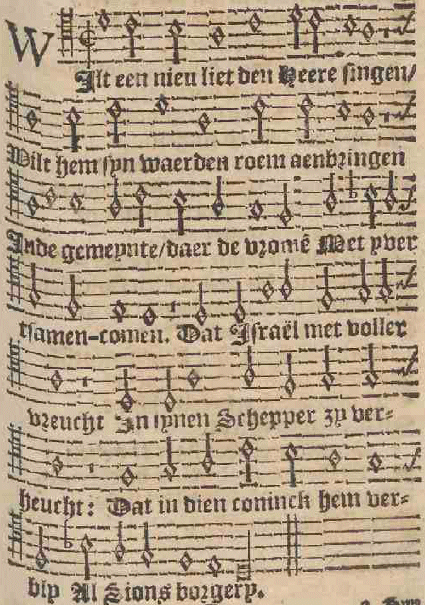 WIlt een nieu liet den Heere singen/
Wilt hem syn waerden roem aenbringen
Inde gemeynte/daer de vromē Met yver
tsamen-comen. Dat Israël met voller
vreucht In synen Schepper zy ver-
heucht: Dat in dien coninck hem ver-
bly Al Sions borgery.